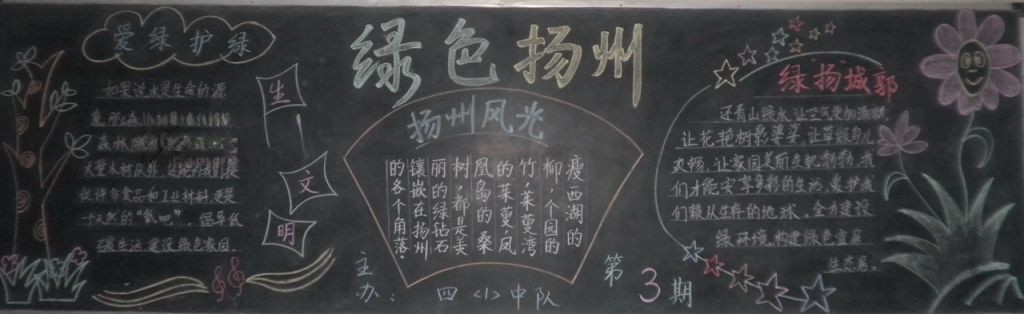 绿色扬州
爱绿护绿
如果说水是生命的源
大量木材以外,还能为我们提
供许多食品和工业材料,更是
十天然的“氧吧”。倡导低
碳生活,建设绿色家园。
生
文
明
扬州风光
瘦西湖的
柳,个园的
竹,茱萸湾
的茱萸,凤
凰岛的桑
树,都是美
丽的绿钻石
镶嵌在扬州
的各个角落。
绿“扬”城郭
还青山绿水,让空气更加清新
让花艳树影婆娑,让草绿
让家园美丽
们才能安享多彩的生活,爱护我
们赖以生存的地球,全力建设
绿环境,构建绿色宜居
生态居。
主办:四〈1〉中队
第3期